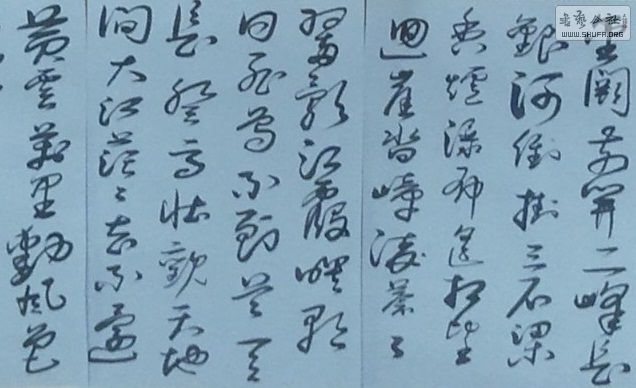 金闕前開二峰長
銀河倒掛三石梁
香爐瀑布遙相望
迴崖沓嶂淩蒼〻
翠影紅霞映朝
日飛鳥不到吳天
長登高壯觀天地
間大江茫〻去不還
黃雲萬里動風色
書藝公社
WWW.SHUFA.ORG